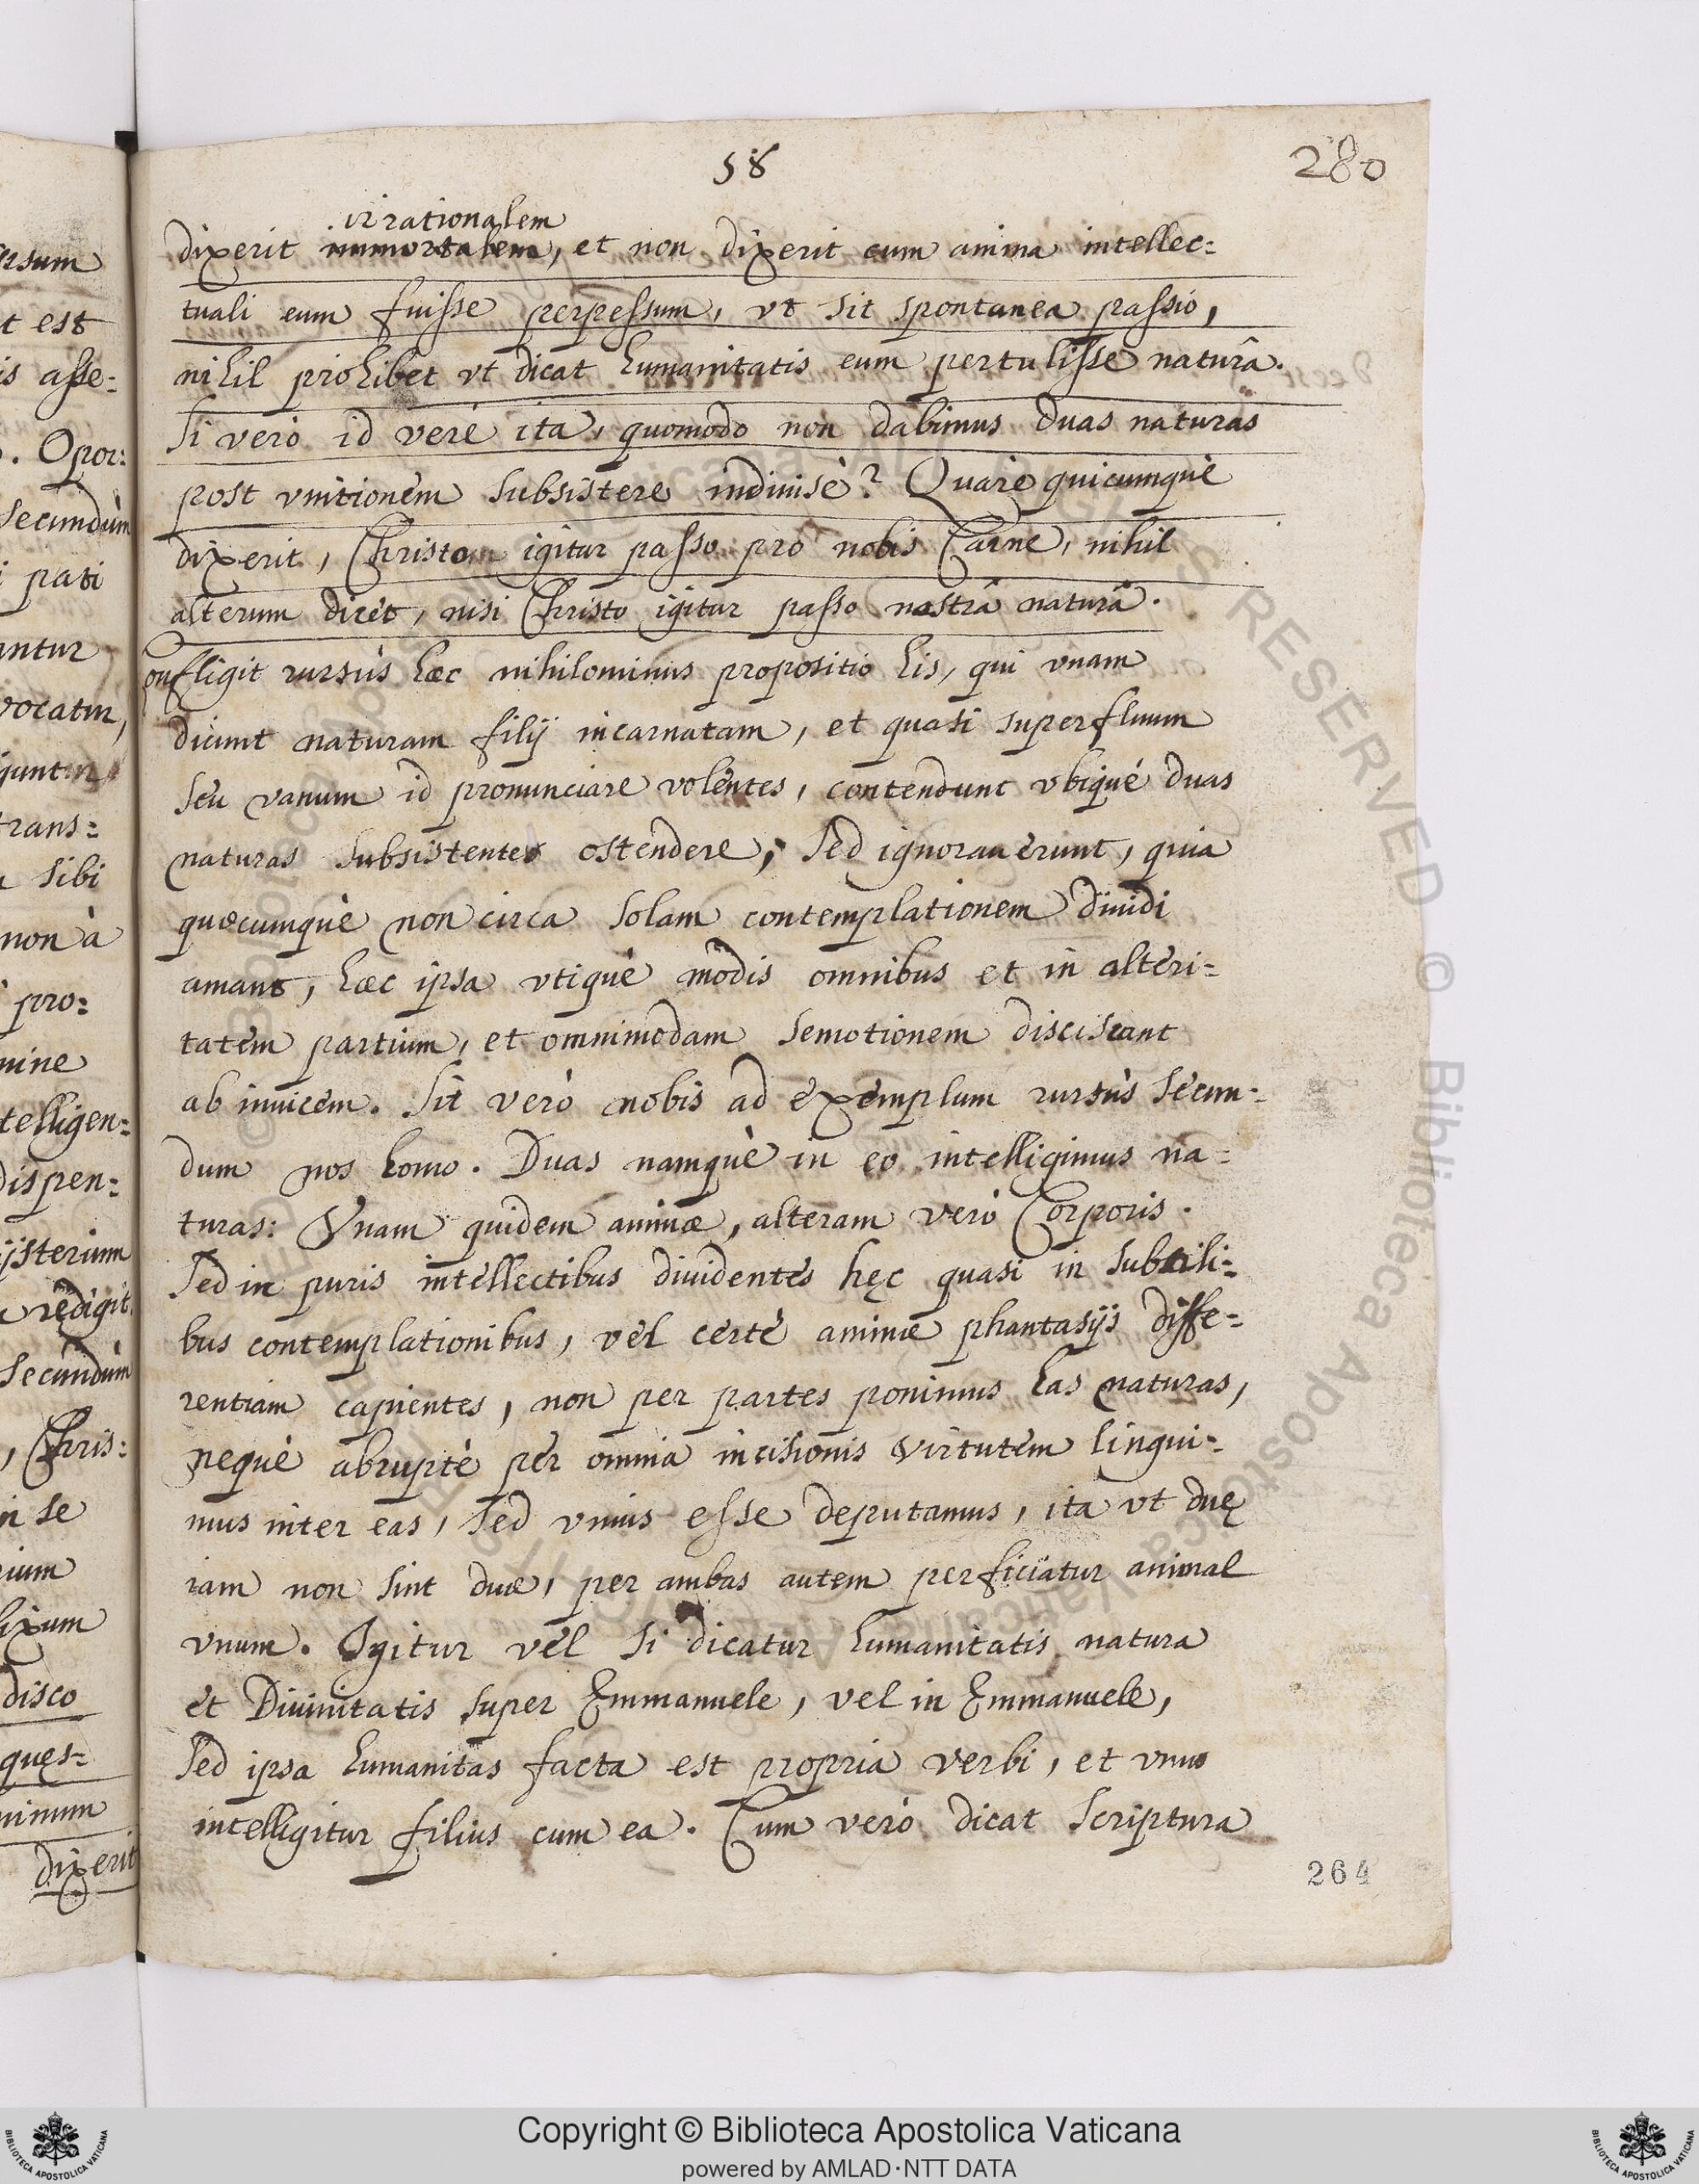 58
280
irrationalem
dixerit immortalem, et non dixerit cum anima intellec=
tuali eum fuisse perpessum, vt sit spontanea passio,
nihil prohibet vt dicat humanitatis eum pertulisse naturâ.
Si verò id verè ita, quomodo non dabimus duas naturas
post vnitionem subsistere indiuisè? Quare quicumquè
dixerit, Christo igitur passo pro nobis Carne, nihil
alterum dicet, nisi Christo igitur passo nostrâ naturâ.
Confligit rursùs hæc nihilominus propositio his, qui vnam
dicunt naturam filij incarnatam, et quasi superfluum
seu vanum id pronunciare volentes, contendunt vbiquè duas
naturas subsistentes ostendere; sed ignorauerunt, quia
quæcumquè non circa solam contemplationem diuidi
amant, hæc ipsa vtiquè modis omnibus et in alteri=
tatem partium, et omnimodam semotionem disciscant
ab inuicem. Sit verò nobis ad exemplum rursùs secun=
dum nos homo. Duas namquè in eo intelligimus na=
turas: Vnam quidem animæ, alteram verò Corporis.
Sed in puris intellectibus diuidentes hęc quasi in subtili=
bus contemplationibus, vel certè animæ phantasijs diffe=
rentiam capientes, non per partes ponimus has naturas,
nequè abruptè per omnia incisionis virtutem linqui=
mus inter eas, sed vnius esse deputamus, ita vt duę
iam non sint duæ, per ambas autem perficiatur animal
vnum. Igitur vel si dicatur humanitatis natura
et Diuinitatis super Emmanuele, vel in Emmanuele,
sed ipsa humanitas facta est propria verbi, et vnus
intelligitur filius cum ea. Cum verò dicat Scriptura
264
est
is asse=
. Opor=
secundùm
pati
vocatur,
trans=
sibi
non à
pro=
telligen=
dispen=
redigit
secundùm
, Chris=
in se
disco
quęs=
dixerit
Copyright © Biblioteca Apostolica Vaticana
powered by AMLAD·NTT DATA
BIBLIOTECA APOSTOLICA VATICANA
BIBLIOTECA APOSTOLICA VATICANA